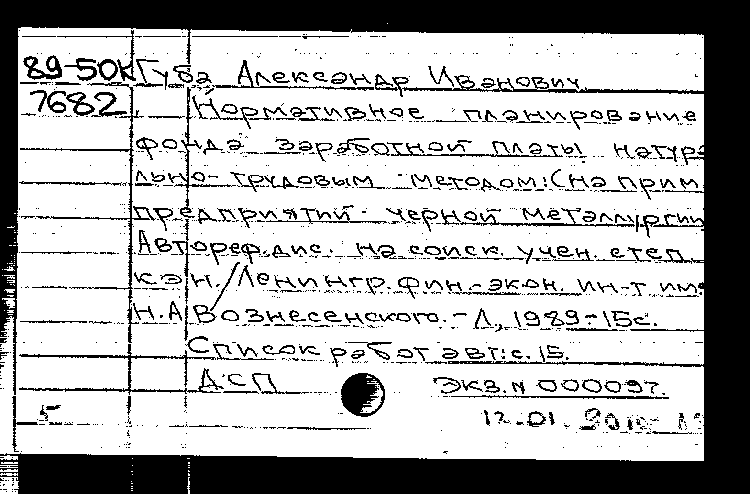 89-50к Губа Александр Иванович
7682 Нормативное планирование
фонда заработной платы натура
льно-трудовым методом:(на прим
предприятий черной металлургии
Автореф.дис. на соиск. учен. степ
к э н./Ленингр. фин.-экон. ин-т им.
Н.А Вознесенского.-Л, 1989-15с.
Список работ авт:с. 15.
ДСП ЭКЗ. N 000097.
5 12.01.